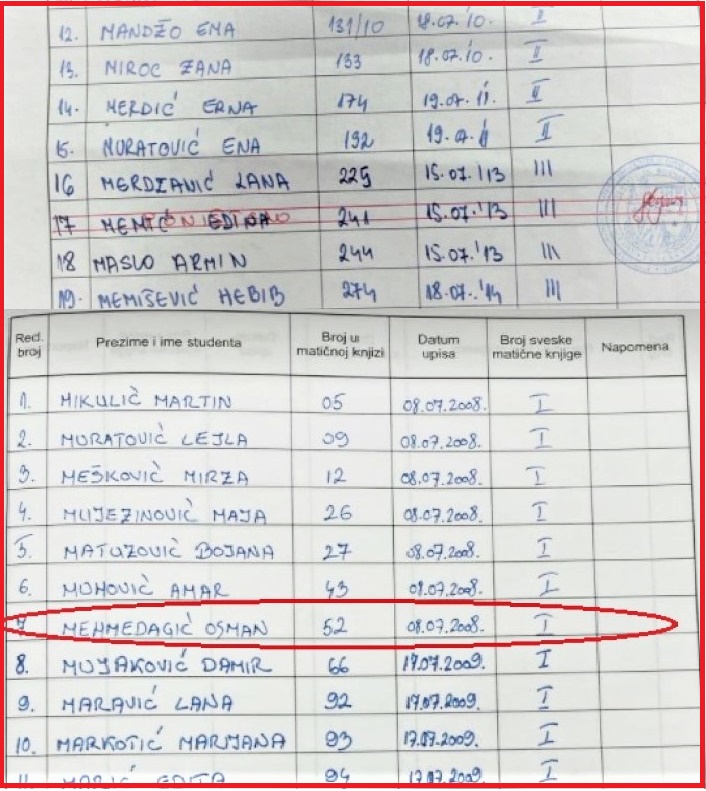 12. MANDŽO EMA 131/10 18.07.'10. II
13. NIROC ZANA 133 18.07.'10. II
14. MERDIĆ ERNA 174 19.07.'11. II
15. MURATOVIĆ ENA 192 19.07.'11 II
16 MERDŽANIĆ LANA 225 15.07.'13 III
17 241 15.07.'13 III
18 MASLO ARMIN 244 15.07.'13 III
19. MEMIŠEVIĆ HEBIB 274 18.07.'14 III
Red. broj Prezime i ime studenta Broj u matičnoj knjizi Datum upisa Broj sveske matične knjige Napomena
1. MIKULIĆ MARTIN 05 08.07.2008. I
2. MURATOVIĆ LEJLA 09 08.07.2008. I
3. MEŠKOVIĆ MIRZA 12 08.07.2008. I
4. MUJEZINOVIĆ MAJA 26 08.07.2008. I
5. MATUZOVIĆ BOJANA 27 08.07.2008. I
6. MUHOVIĆ AMAR 43 08.07.2008. I
7 MEHMEDAGIĆ OSMAN 52 08.07.2008. I
8. MUJAKOVIĆ DAMIR 66 17.07.2009. I
9. MARAVIĆ LANA 92 17.07.2009. I
10. MARKOTIĆ MARIJANA 93 17.07.2009. I
11. MARIĆ EDITA 94 17.07.2009. I